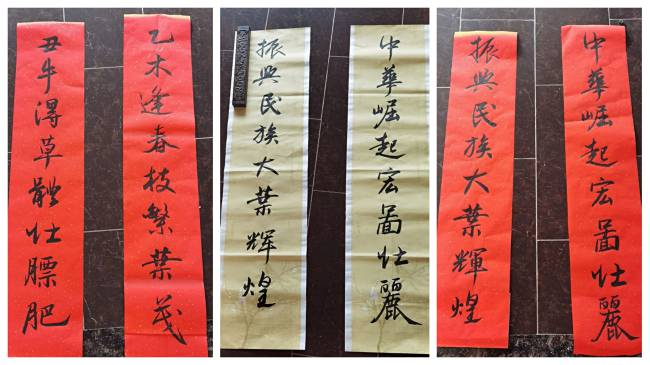 乙木逢春枝繁葉茂
丑牛得草體壮膘肥
中華崛起宏圖壮麗
振興民族大葉辉煌
中華崛起宏圖壮麗
振興民族大葉輝煌